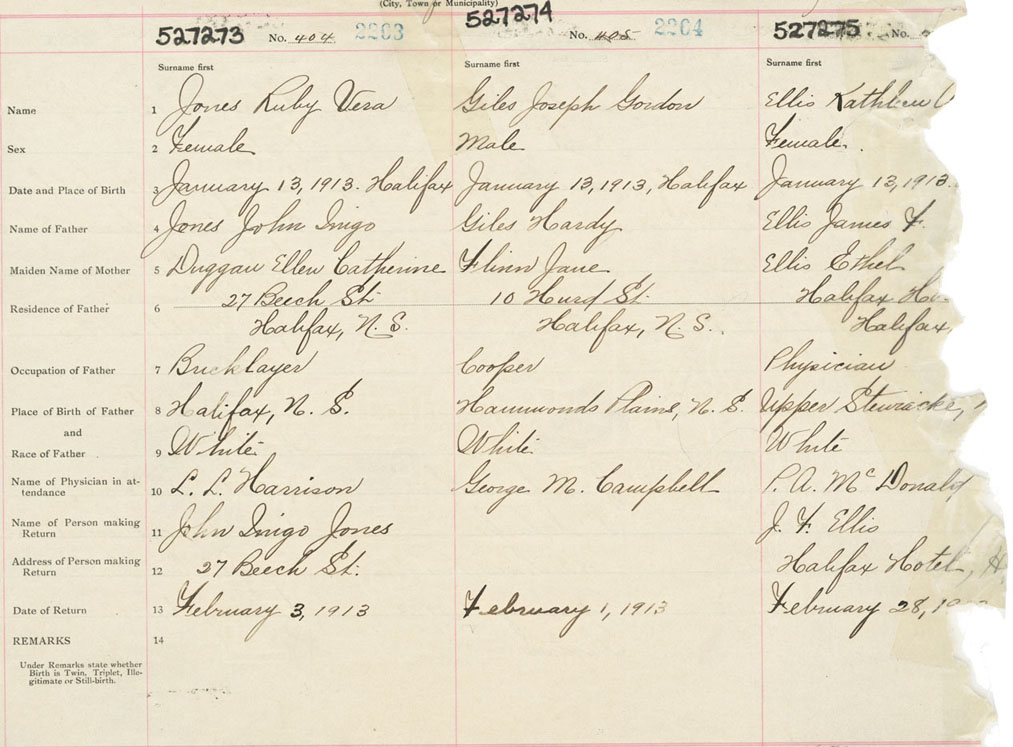 (City, Town or Municipality)
527273 No. 404 2263 527274 No. 405 2264 527275 No.
Surname first Surname first Surname first
Name 1 Jones Ruby Vera Giles Joseph Gordon Ellis Kathleen
Sex 2 Female Male Female.
Date and Place of Birth 3 January 13, 1913. Halifax January 13, 1913, Halifax January 13, 1913.
Name of Father 4 Jones John Inigo Giles Hardy Ellis James F.
Maiden Name of Mother 5 Duggan Ellen Catherine Flinn Jane Ellis Ethel
Residence of Father 6 27 Beech St. 10 Hurd St. Halifax
Halifax, N. S. Halifax, N. S. Halifax,
Occupation of Father 7 Bricklayer Cooper Physician
Place of Birth of Father 8 Halifax, N. S. Hammonds Plains, N. S. Upper Stewiacke,
and
Race of Father 9 White. White. White
Name of Physician in at-
tendance 10 L. L. Harrison George M. Campbell P. A. McDonald
Name of Person making
Return 11 John Inigo Jones J. F. Ellis
Address of Person making
Return 12 27 Beech St. Halifax Hotel, H
Date of Return 13 February 3, 1913 February 1, 1913 February 28,
REMARKS 14
Under Remarks state whether
Birth is Twin, Triplet, Ille-
gitimate or Still-birth.